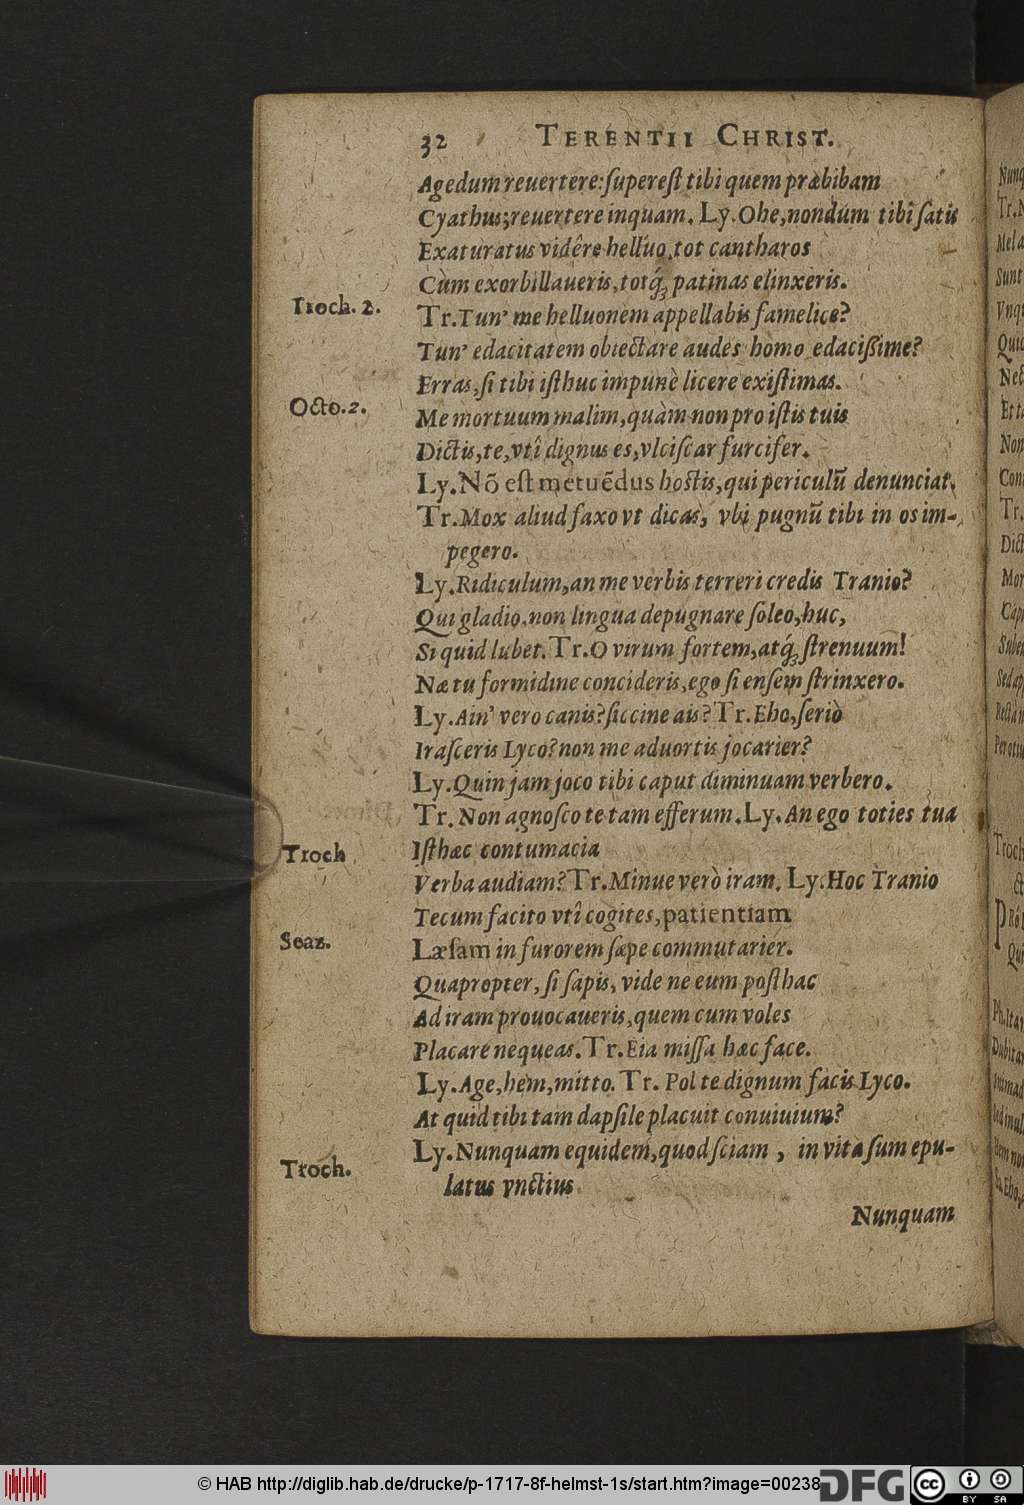 32 TERENTII CHRIST.
Agedum reuertere: ſupereſt tibi quem præbibam
Cyathus; reuertere inquam. Ly. Ohe, nondum tibi ſatis
Exaturatus vidêre helluo, tot cantharos
Cùm exorbillaueris, totq́ꝫ patinas elinxeris.
Troch. 2.
Tr. Tun' me helluonem appellabis famelice?
Tun' edacitatem obiectare audes homo edacißime?
Erras, ſi tibi iſthuc impunè licere exiſtimas.
Octo. 2.
Me mortuum malim, quàm non pro iſtis tuis
Dictis, te, vtî dignus es, vlciſcar furcifer.
Ly. Nõ eſt metuẽdus hoſtis, qui periculũ denunciat.
Tr. Mox aliud faxo vt dicas, vbi pugnũ tibi in os im-
pegero.
Ly. Ridiculum, an me verbis terreri credis Tranio?
Qui gladio, non lingua depugnare ſoleo, huc,
Si quid lubet. Tr. O virum fortem, atq́ꝫ ſtrenuum!
Næ tu formidine concideris, ego ſi enſem ſtrinxero.
Ly. Ain' vero canis? ſiccine ais? Tr. Eho, ſeriò
Iraſceris Lyco? non me aduortis jocarier?
Ly. Quin jam joco tibi caput diminuam verbero.
Tr. Non agnoſco te tam efferum. Ly. An ego toties tua
Troch
Iſthæc contumacia
Verba audiam? Tr. Minue verò iram. Ly. Hoc Tranio
Tecum facito vtî cogites, patientiam
Scaz.
Læſam in furorem ſæpe commutarier.
Quapropter, ſi ſapis, vide ne eum poſthac
Ad iram prouocaueris, quem cum voles
Placare nequeas. Tr. Eia miſſa hæc face.
Ly. Age, hem, mitto. Tr. Pol te dignum facis Lyco.
At quid tibi tam dapſile placuit conuiuium?
Troch.
Ly. Nunquam equidem, quod ſciam, in vita ſum epu-
latus vnctius
Nunquam
© HAB http://diglib.hab.de/drucke/p-1717-8f-helmst-1s/start.htm?image=00238
DFG
cc BY SA